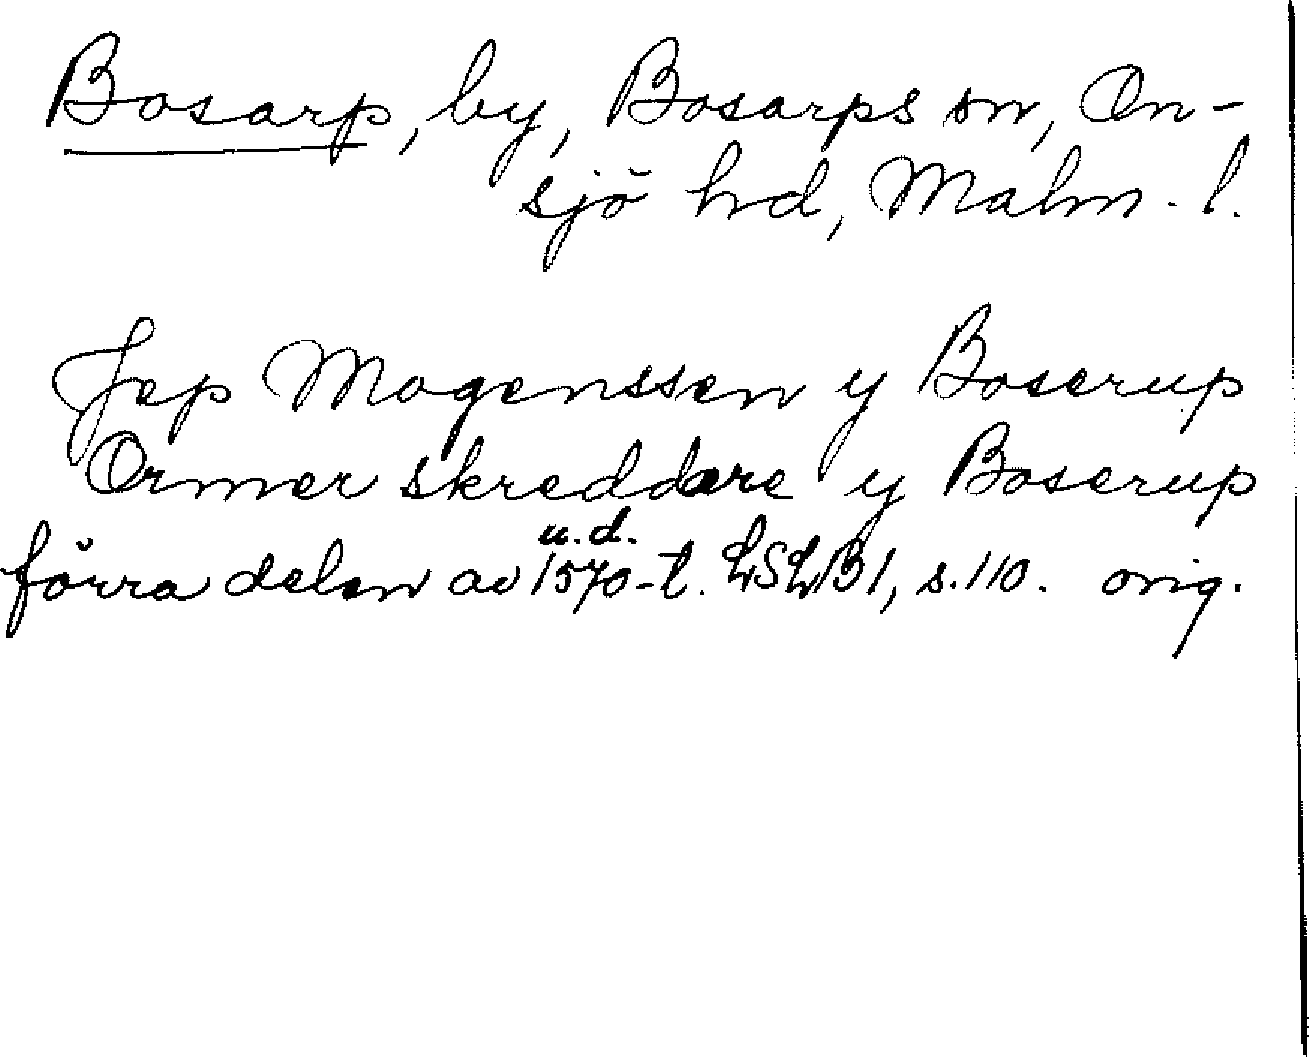 Bosarp, by, Bosarps sn, On-
sjö hrd, Malm. l.
Jep Mogenssen y Boserup
Ormer skreddere y Boserup
u.d.
förra delen av 1570-t. LSLB1, s.110. orig.